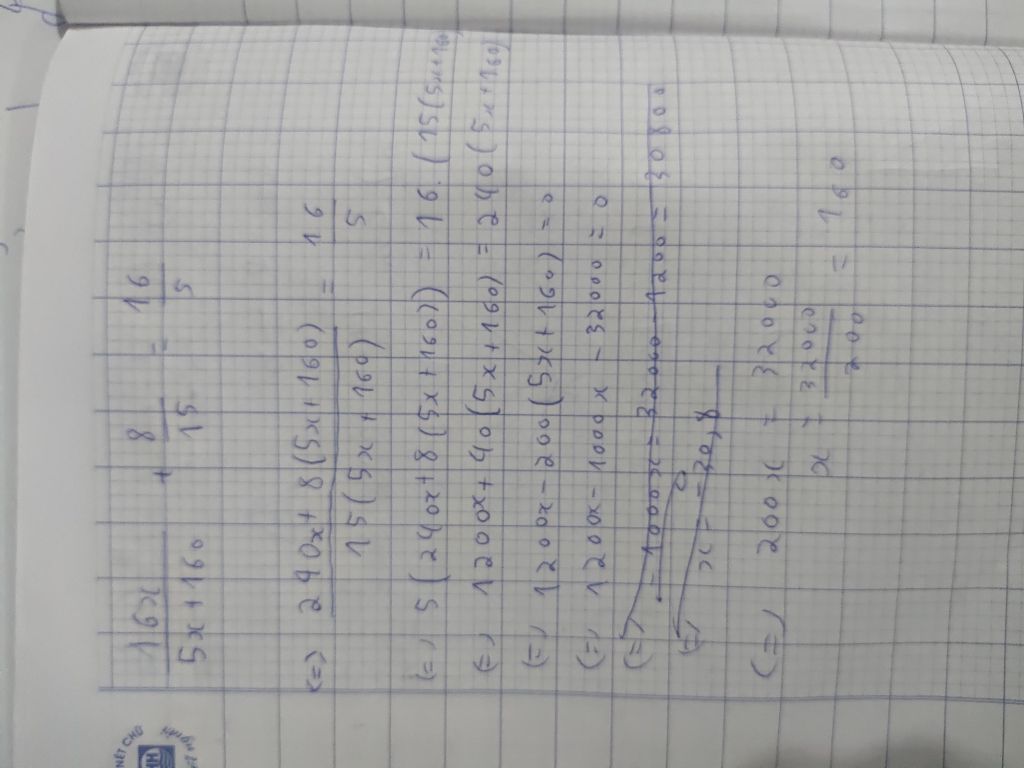 16x/(5x+160) + 8/15 = 16/5
<=> (240x+8(5x+160))/(15(5x+160)) = 16/5
(=) 5(240x+8(5x+160)) = 16.(15(5x+160)
(=) 1200x+40(5x+160) = 240(5x+160)
(=) 1200x-200(5x+160) = 0
(=) 1200x-1000x-32000 = 0
(=) -1000x = 32000-1200 = 30800
(=) x = -30,8
(=) 200x = 32000
x = 32000/200 = 160
NÉT CHỮ